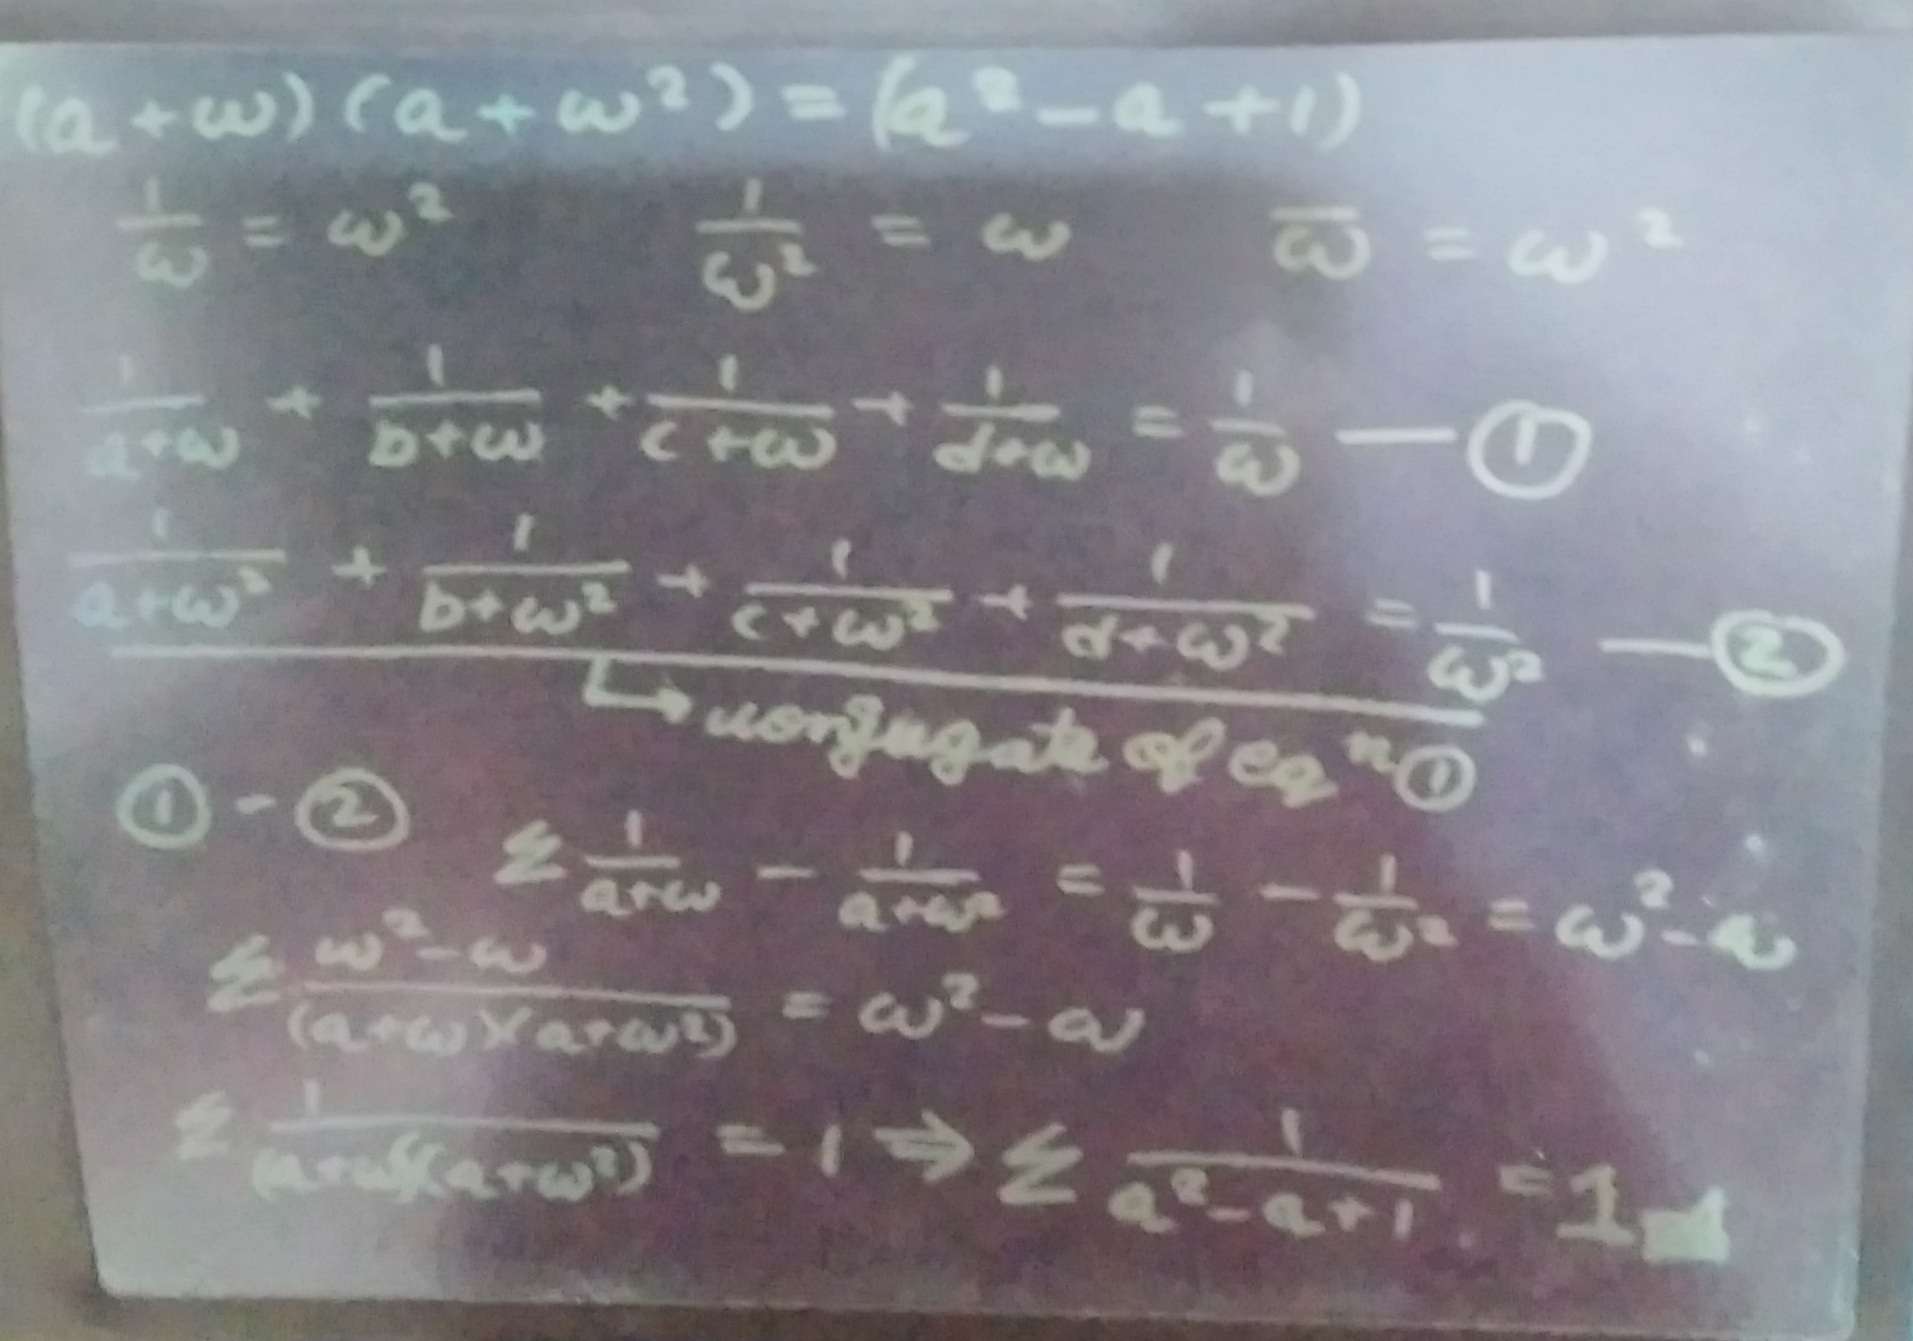 (a+ω)(a+ω²) = (a²-a+1)
1/ω = ω² 1/ω² = ω ω̅ = ω²
1/(a+ω) + 1/(b+ω) + 1/(c+ω) + 1/(d+ω) = 1/ω — ①
1/(a+ω²) + 1/(b+ω²) + 1/(c+ω²) + 1/(d+ω²) = 1/ω² — ②
↳ conjugate of eqⁿ ①
① - ② Σ 1/(a+ω) - 1/(a+ω²) = 1/ω - 1/ω² = ω² - ω
Σ (ω²-ω)/((a+ω)(a+ω²)) = ω² - ω
Σ 1/((a+ω)(a+ω²)) = 1 ⇒ Σ 1/(a²-a+1) = 1